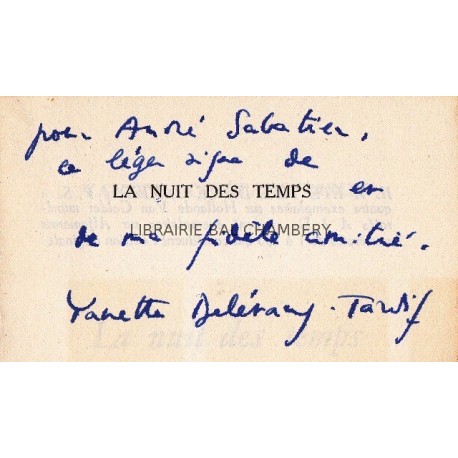 pour André Sabatier,
ce léger signe de
LA NUIT DES TEMPS
en
LIBRAIRIE BAL CHAMBERY
de ma fidèle amitié.
Yanette Delétang-Tardif
La nuit des temps